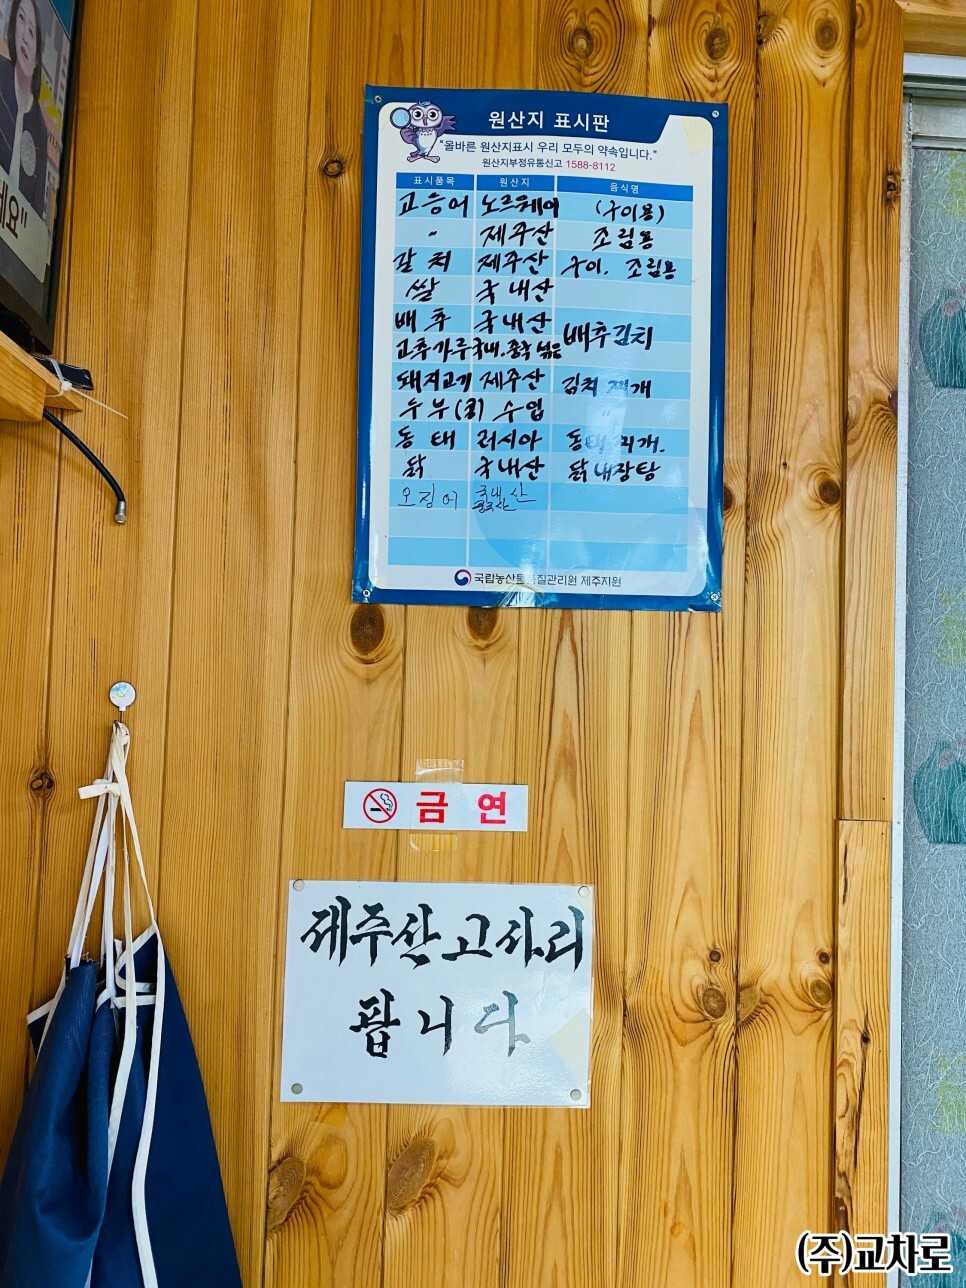 네요"
원산지 표시판
"올바른 원산지표시 우리 모두의 약속입니다."
원산지부정유통신고 1588-8112
표시품목 원산지 음식명
고등어 노르웨이 (구이용)
〃 제주산 조림용
갈치 제주산 구이. 조림용
쌀 국내산
배추 국내산 배추김치
고추가루 국내.중국 섞음
돼지고기 제주산 김치찌개
두부(콩) 수입 〃
동태 러시아 동태찌개.
닭 국내산 닭내장탕
오징어 국내산
중국산
국립농산물품질관리원 제주지원
금연
제주산 고사리
팝니다
(주)교차로